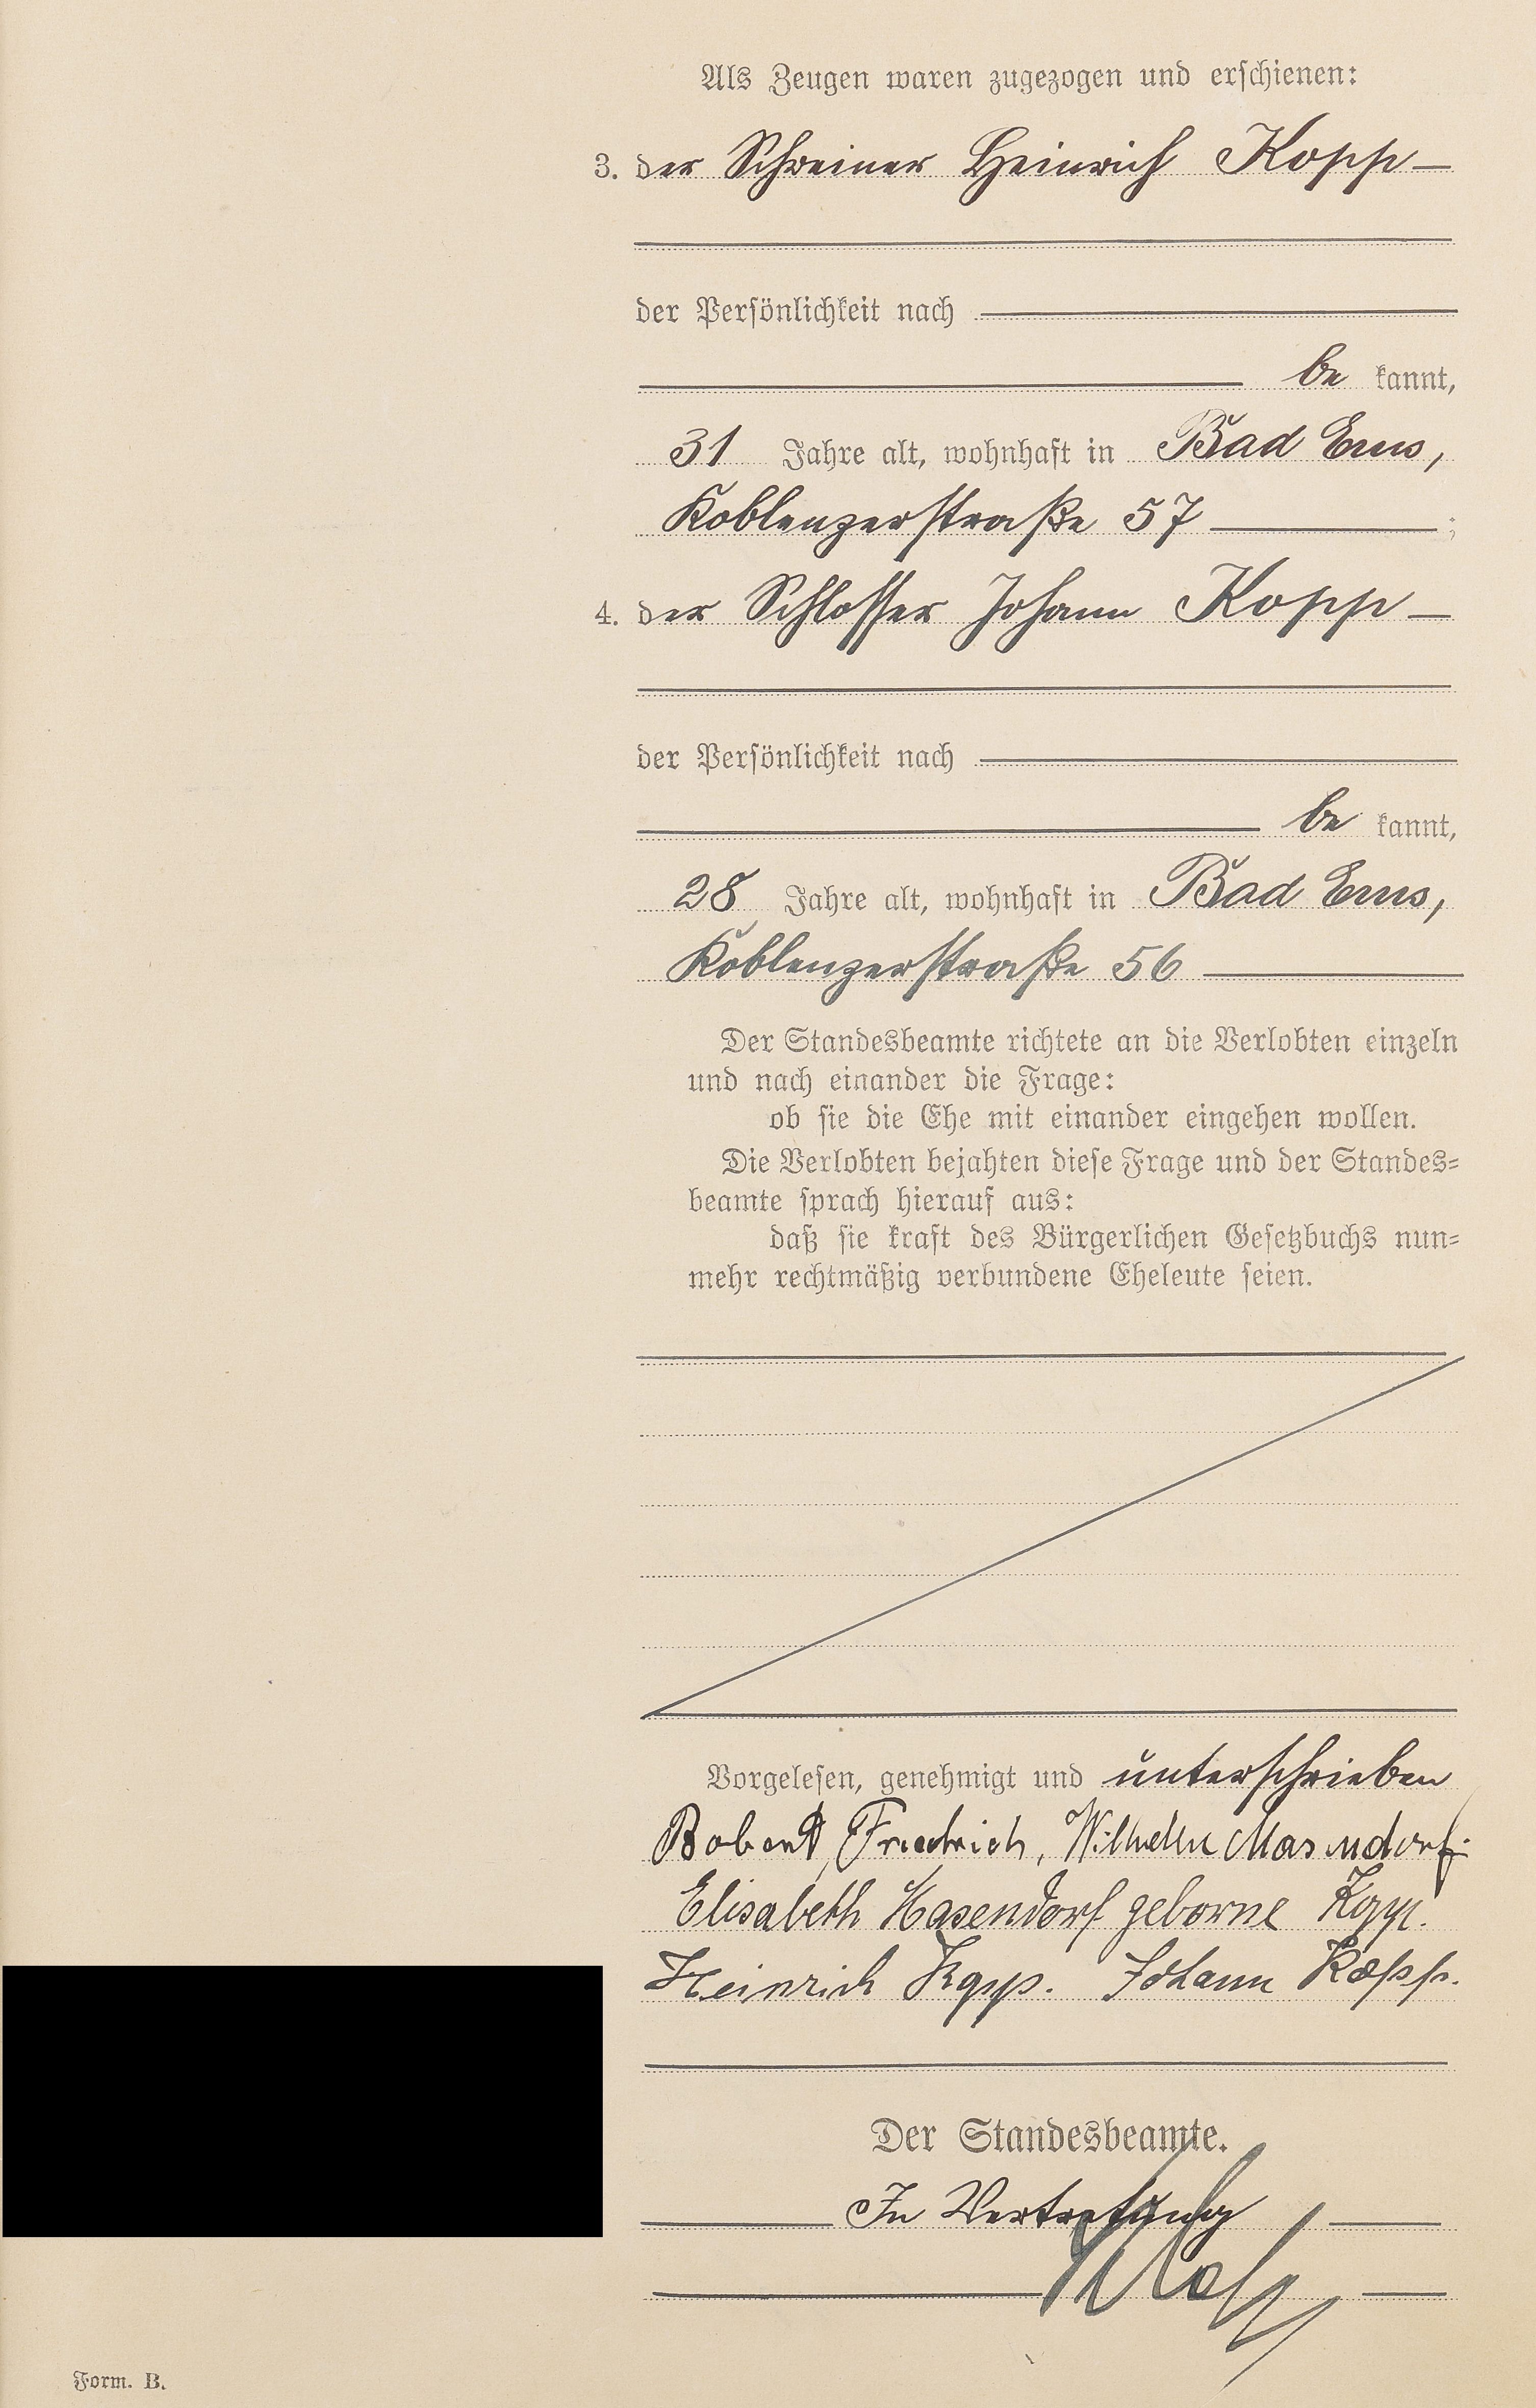 Als Zeugen waren zugezogen und erschienen:
3. der Schreiner Heinrich Kopp
der Persönlichkeit nach
be kannt,
31 Jahre alt, wohnhaft in Bad Ems,
Koblenzerstraße 57 ;
4. der Schlosser Johann Kopp
der Persönlichkeit nach
be kannt,
28 Jahre alt, wohnhaft in Bad Ems,
Koblenzerstraße 56
Der Standesbeamte richtete an die Verlobten einzeln
und nach einander die Frage:
ob sie die Ehe mit einander eingehen wollen.
Die Verlobten bejahten diese Frage und der Standes-
beamte sprach hierauf aus:
daß sie kraft des Bürgerlichen Gesetzbuchs nun-
mehr rechtmäßig verbundene Eheleute seien.
Vorgelesen, genehmigt und unterschrieben
Robert, Friedrich, Wilhelm Masendorf.
Elisabeth Masendorf geborne Kopp.
Heinrich Kopp. Johann Kopp.
Der Standesbeamte.
In Vertretung
Form. B.